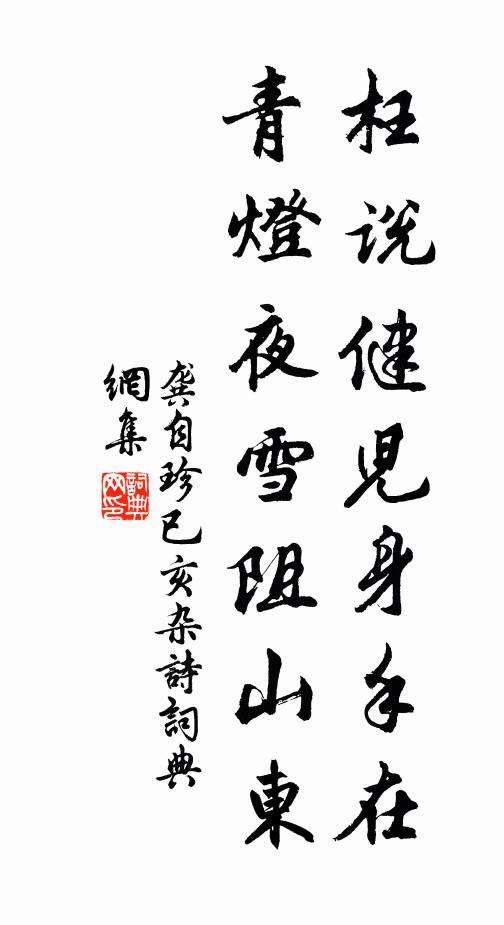 枉説健兒身手在
青燈夜雪阻山東
龔自珍己亥杂詩詞典
網集
詞典
网印